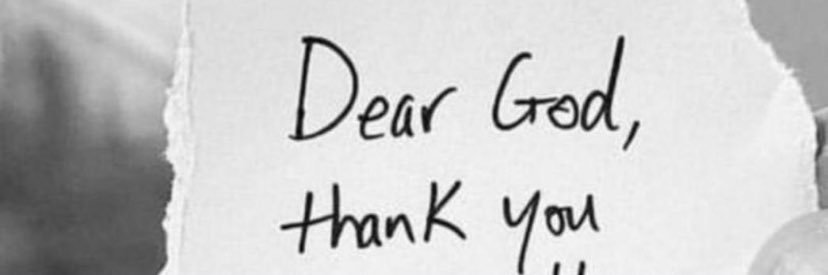 Dear God,
thank you